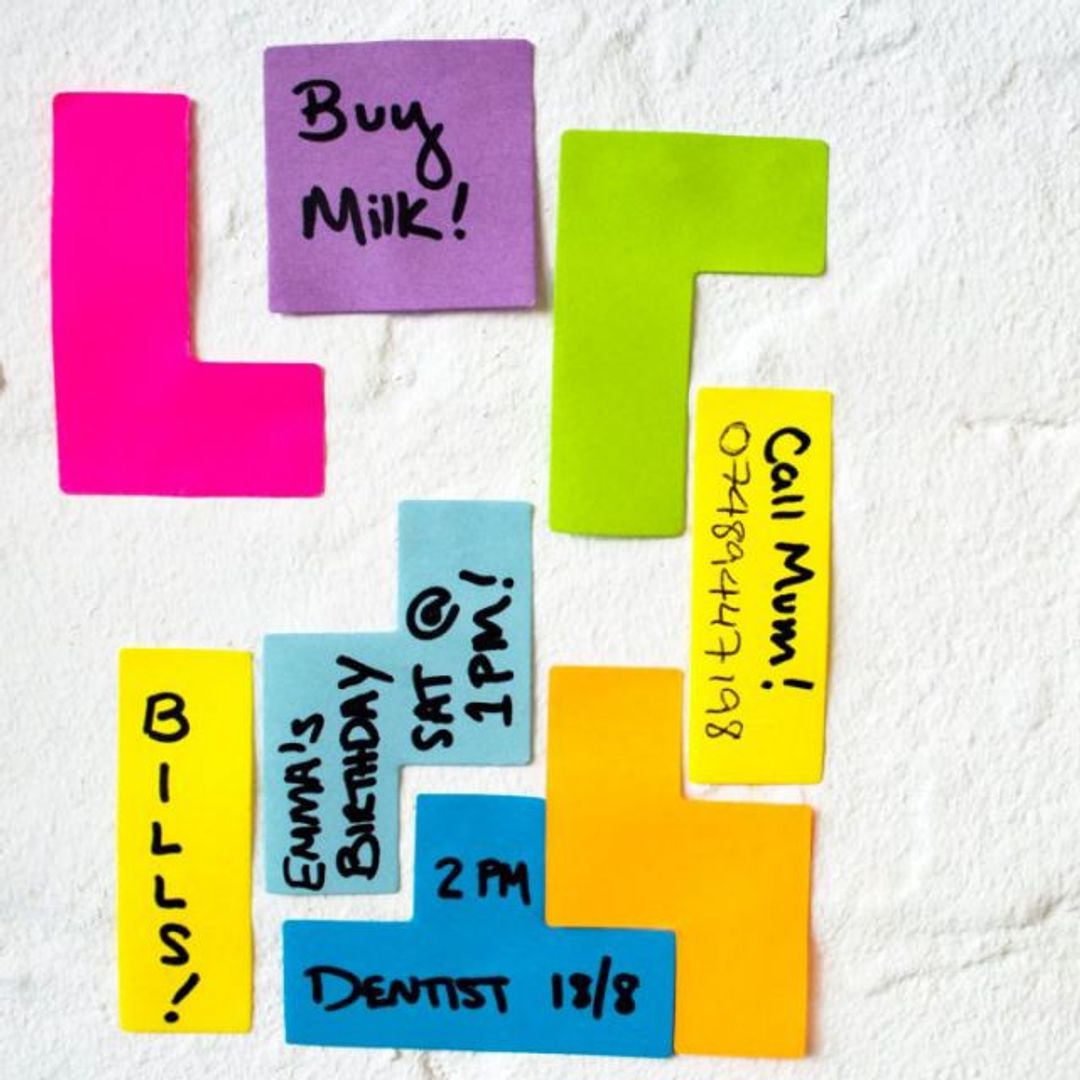 Buy
Milk!
Call Mum!
07489447198
EMMA's
BIRTHDAY
SAT @
1PM!
BILLS!
2 PM
DENTIST 18/8